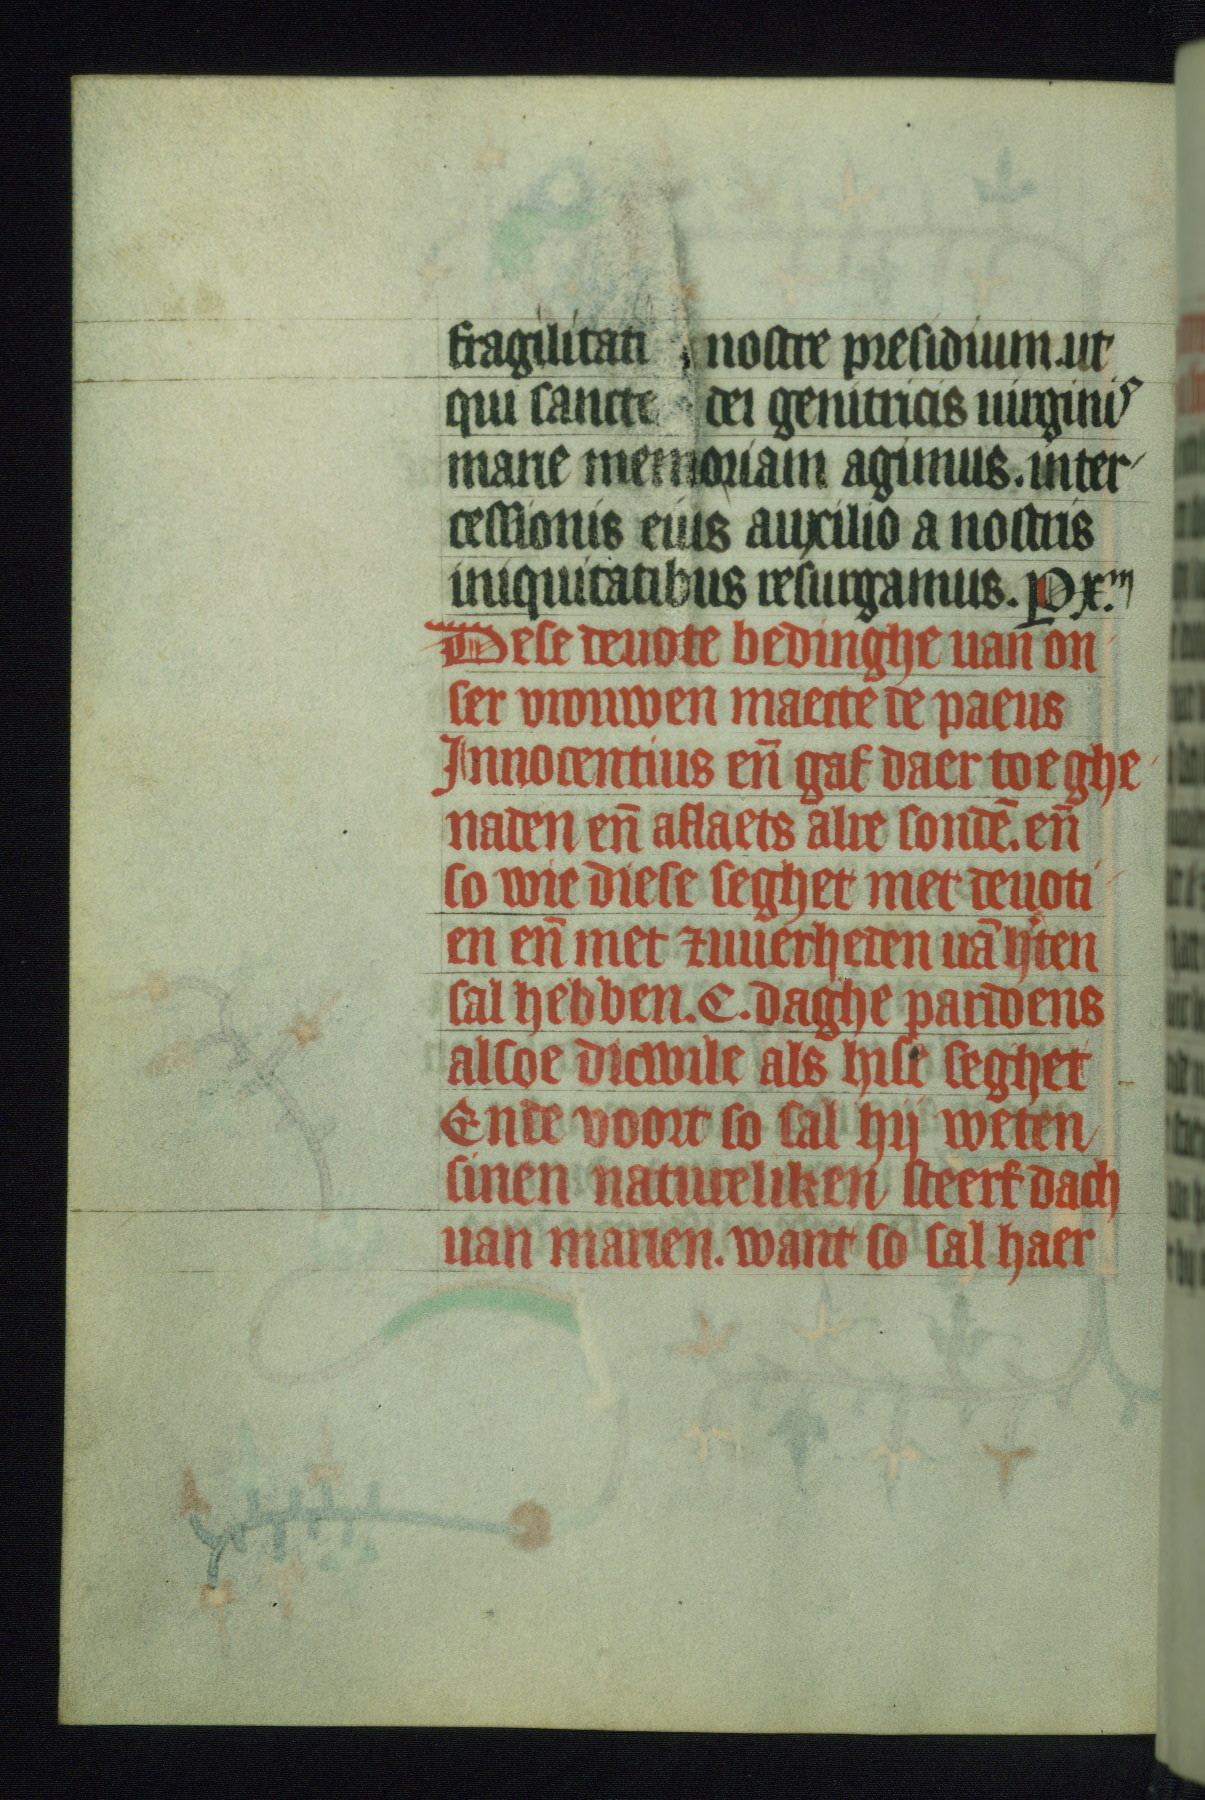 fragilitati nostre presidium. ut
qui sancte dei genitricis uirginis
marie memoriam agimus. inter
cessionis eius auxilio a nostris
iniquitatibus resurgamus. P xm̄
Dese deuote bedinghe uan on
ser vrouwen maecte de paeus
Innocentius en̄ gaf daer toe ghe
naden en̄ aflaets alre sondē. en̄
so wie diese seghet met deuoti
en en̄ met zuuerheden uā hʼten
sal hebben. C. daghe pardoens
alsoe dicwile als hise seghet
Ende voort so sal hij weten
sinen natureliken steerf dach
uan marien. want so sal haer